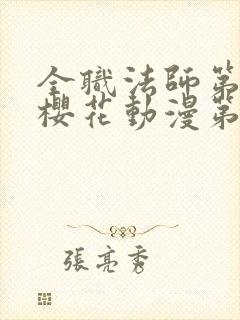 全職法師第
櫻花動漫第
張亮秀